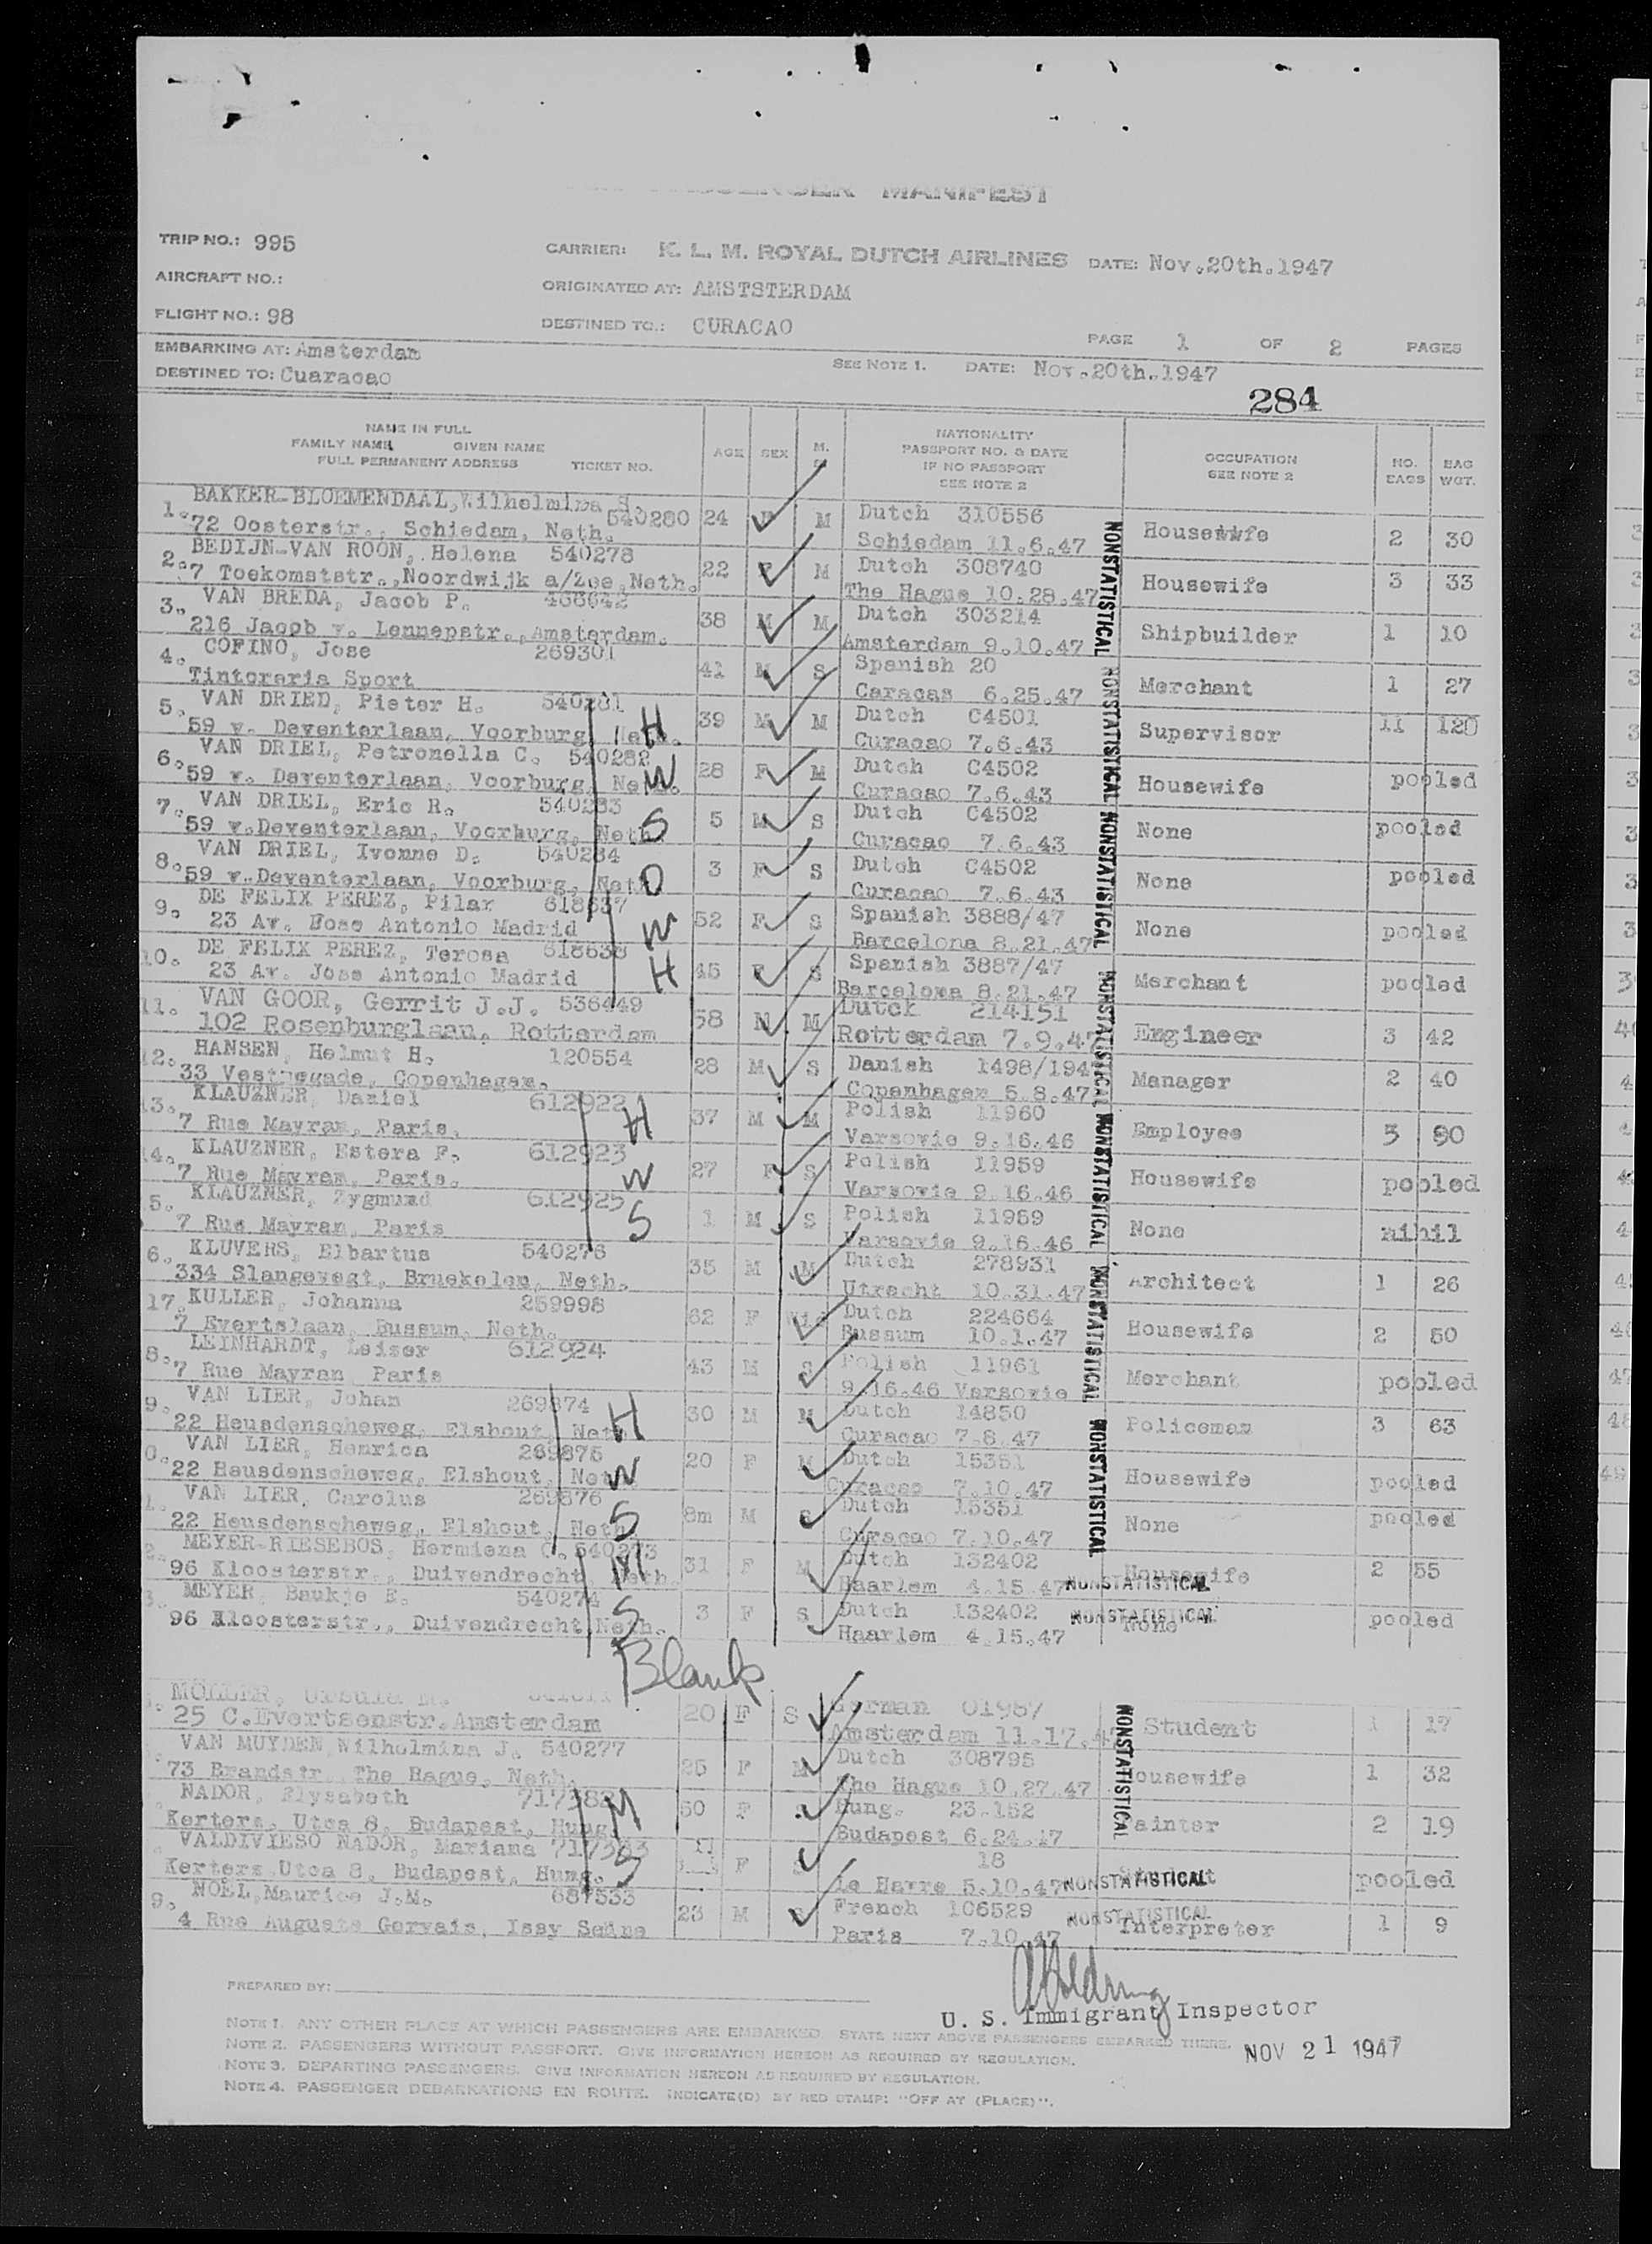 MANIFEST
TRIP NO.: 995
CARRIER: K. L. M. ROYAL DUTCH AIRLINES DATE: Nov.20th.1947
AIRCRAFT NO.:
ORIGINATED AT: AMSTSTERDAM
FLIGHT NO.: 98
DESTINED TO.: CURACAO
PAGE 1 OF 2 PAGES
EMBARKING AT: Amsterdam
SEE NOTE 1. DATE: Nov.20th.1947
DESTINED TO: Cuaracao
284
NAME IN FULL
FAMILY NAME GIVEN NAME
FULL PERMANENT ADDRESS TICKET NO.
AGE SEX M. S
NATIONALITY
PASSPORT NO. & DATE
IF NO PASSPORT
SEE NOTE 2
OCCUPATION
SEE NOTE 2
NO. BAGS
BAG WGT.
BAKKER-BLOEMENDAAL, Wilhelmina S.
1. 72 Oosterstr., Schiedam, Neth. 540280 24 F M Dutch 310556
Schiedam 11.6.47 Housewife 2 30
BEDIJN-VAN ROON, Helena 540278
2. 7 Toekomststr., Noordwijk a/Zee, Neth. 22 F M Dutch 308740
The Hague 10.28.47 Housewife 3 33
3. VAN BREDA, Jacob P. 468642
216 Jacob v. Lennepstr., Amsterdam. 38 M M Dutch 303214
Amsterdam 9.10.47 Shipbuilder 1 10
4. COFINO, Jose 269301
Tintoraria Sport 41 M S Spanish 20
Caracas 6.25.47 Merchant 1 27
5. VAN DRIED, Pieter H. 540281
59 v. Deventerlaan, Voorburg, Neth. H 39 M M Dutch C4501
Curacao 7.6.43 Supervisor 11 120
6. VAN DRIEL, Petronella C. 540282
59 v. Deventerlaan, Voorburg, Neth. W 28 F M Dutch C4502
Curacao 7.6.43 Housewife pooled
7. VAN DRIEL, Eric R. 540283
59 v.Deventerlaan, Voorburg, Neth. S 5 M S Dutch C4502
Curacao 7.6.43 None pooled
8. VAN DRIEL, Ivonne D. 540284
59 v.Deventerlaan, Voorburg, Neth. D 3 F S Dutch C4502
Curacao 7.6.43 None pooled
9. DE FELIX PEREZ, Pilar 618637
23 Av. Jose Antonio Madrid W 52 F S Spanish 3888/47
Barcelona 8.21.47 None pooled
10. DE FELIX PEREZ, Teresa 618638
23 Av. Jose Antonio Madrid H 45 F S Spanish 3887/47
Barcelona 8.21.47 Merchant pooled
11. VAN GOOR, Gerrit J.J. 536449
102 Rosenburglaan, Rotterdam 58 M M Dutch 214151
Rotterdam 7.9.47 Engineer 3 42
12. HANSEN, Helmut H. 120554
33 Vestregade, Copenhagen. 28 M S Danish 1498/194
Copenhagen 5.8.47 Manager 2 40
13. KLAUZNER, Daniel 612922
7 Rue Mayran, Paris. H 37 M M Polish 11960
Varsovie 9.16.46 Employee 5 90
14. KLAUZNER, Estera F. 612923
7 Rue Mayran, Paris. W 27 F S Polish 11959
Varsovie 9.16.46 Housewife pooled
5. KLAUZNER, Zygmund 612925
7 Rue Mayran, Paris S 1 M S Polish 11959
Varsovie 9.16.46 None nihil
6. KLUVERS, Elbartus 540276
334 Slangevegt, Bruekelen, Neth. 35 M M Dutch 278931
Utrecht 10.31.47 Architect 1 26
17. KULLER, Johanna 259998
7 Evertslaan, Bussum, Neth. 62 F Wid Dutch 224664
Bussum 10.1.47 Housewife 2 50
8. LEINHARDT, Leiser 612924
7 Rue Mayran Paris 43 M S Polish 11961
9.16.46 Varsovie Merchant pooled
9. VAN LIER, Johan 269874
22 Heusdenscheweg, Elshout, Neth. H 30 M M Dutch 14850
Curacao 7.8.47 Policeman 3 63
0. VAN LIER, Henrica 269875
22 Heusdenscheweg, Elshout, Neth. W 20 F M Dutch 15351
Curacao 7.10.47 Housewife pooled
VAN LIER, Carolus 269876
22 Heusdenscheweg, Elshout, Neth. S 8m M S Dutch 15351
Curacao 7.10.47 None pooled
MEYER-RIESEBOS, Hermiena C. 540273
96 Kloosterstr., Duivendrecht, Neth. M 31 F M Dutch 132402
Haarlem 4.15.47 NONSTATISTICAL Housewife 2 55
MEYER, Baukje E. 540274
96 Kloosterstr., Duivendrecht, Neth. S 3 F S Dutch 132402
Haarlem 4.15.47 NONSTATISTICAL None pooled
Blank
MOLLER, Ursula
25 C.Evertsenstr.Amsterdam 20 F S German 01987
Amsterdam 11.17.47 Student 1 17
VAN MUYDEN, Wilhelmina J. 540277
73 Brandstr. The Hague, Neth. 25 F M Dutch 308795
The Hague 10.27.47 Housewife 1 32
NADOR, Elysabeth 717382
Kerters, Utca 8, Budapest, Hung. M 50 F Hung. 23.152
Budapest 6.24.47 Painter 2 19
VALDIVIESO NADOR, Mariana 717383
Kerters Utca 8, Budapest, Hung. S F S 18
Le Havre 5.10.47 NONSTATISTICAL pooled
9. NOEL, Maurice J.M. 687533
4 Rue Auguste Gervais, Issy Seine 23 M S French 106529
Paris 7.10.47 NONSTATISTICAL Interpreter 1 9
NONSTATISTICAL NONSTATISTICAL NONSTATISTICAL NONSTATISTICAL NONSTATISTICAL NONSTATISTICAL NONSTATISTICAL
NONSTATISTICAL
PREPARED BY:
U. S. Immigrant Inspector
NOTE 1. ANY OTHER PLACE AT WHICH PASSENGERS ARE EMBARKED. STATE NEXT ABOVE PASSENGERS EMBARKED THERE.
NOTE 2. PASSENGERS WITHOUT PASSPORT. GIVE INFORMATION HEREON AS REQUIRED BY REGULATION.
NOV 21 1947
NOTE 3. DEPARTING PASSENGERS. GIVE INFORMATION HEREON AS REQUIRED BY REGULATION.
NOTE 4. PASSENGER DEBARKATIONS EN ROUTE. INDICATE(D) BY RED STAMP: "OFF AT (PLACE)".